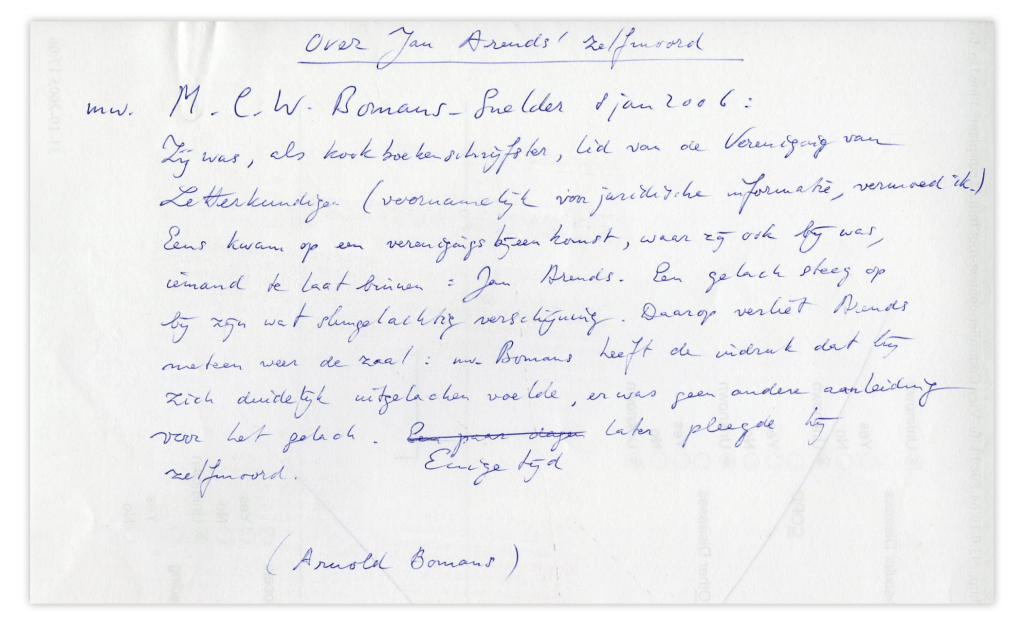 Over Jan Arends' zelfmoord
mw. M.C.W. Bomans-Snelder 8 jan 2006:
Zij was, als kookboekenschrijfster, lid van de Vereniging van
Letterkundigen (voornamelijk voor juridische informatie, vermoed ik.)
Eens kwam op een verenigingsbijeenkomst, waar zij ook bij was,
iemand te laat binnen: Jan Arends. Een gelach steeg op
bij zijn wat slungelachtig verschijning. Daarop verliet Arends
meteen weer de zaal: mw. Bomans heeft de indruk dat hij
zich duidelijk uitgelachen voelde, er was geen andere aanleiding
voor het gelach. Een paar dagen later pleegde hij
Enige tijd
zelfmoord.
(Arnold Bomans)